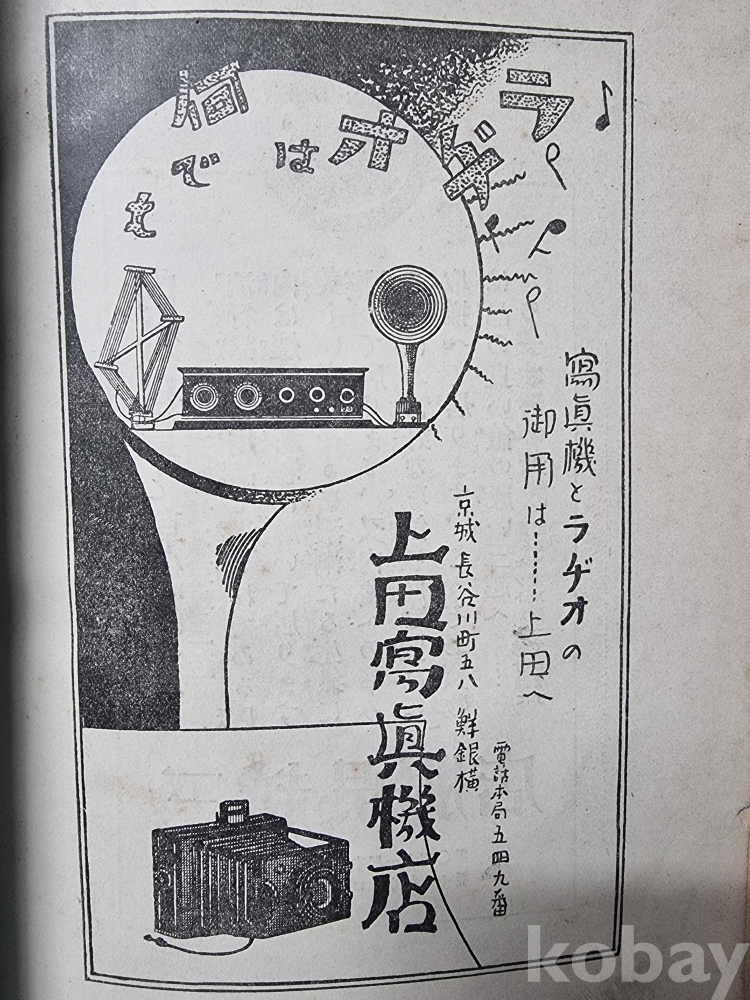 ラヂオは何でも
寫眞機とラヂオの
御用は……上田へ
電話本局五四九番
京城 長谷川町五八 鮮銀横
上田寫眞機店
kobay